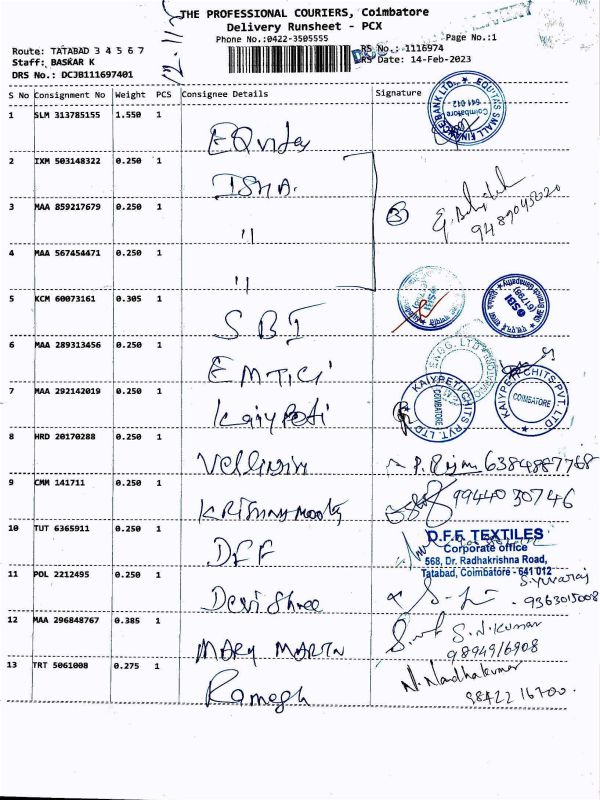 THE PROFESSIONAL COURIERS, Coimbatore
Delivery Runsheet - PCX
Phone No.:0422-3505555
Page No.:1
Route: TATABAD 3 4 5 6 7
RS No.: 1116974
Staff: BASKAR K
RS Date: 14-Feb-2023
DRS No.: DCJB111697401
S No Consignment No Weight PCS Consignee Details Signature
1 SLM 313785155 1.550 1 EQuitas
EQUITAS SMALL FINANCE BANK LTD.,
Coimbatore
641 012
2 IXM 503148322 0.250 1 ISHA.
3 MAA 859217679 0.250 1 "
3
9489045020
4 MAA 567454471 0.250 1 "
5 KCM 60073161 0.305 1 SBI
SBI
SBI
6 MAA 289313456 0.250 1 EMTICI
ENGG. LTD
7 MAA 292142019 0.250 1 Kaiypeti
KAIYPETI CHITS PVT. LTD.
COIMBATORE
KAIYPETI CHITS PVT. LTD.
COIMBATORE
8 HRD 20170288 0.250 1
6384887768
9 CMM 141711 0.250 1 KRISHNAMOORTHY
9944030746
10 TUT 6365911 0.250 1 DFF
D.F.F. TEXTILES
Corporate office
568, Dr. Radhakrishna Road,
Tatabad, Coimbatore - 641 012
11 POL 2212495 0.250 1 Devi Shree
S. Yuvaraj
9363015008
12 MAA 296848767 0.385 1 MARY MARTIN
S.N.Kumar
9894916908
13 TRT 5061008 0.275 1 Ramesh
N. Nandhakumar
9842216700.